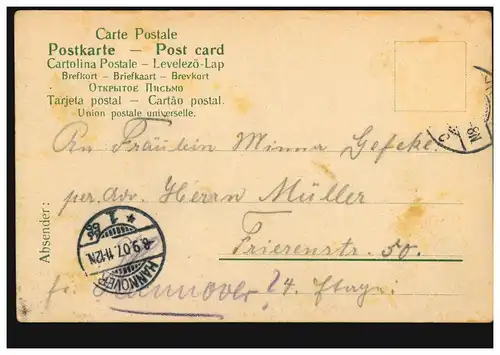 Carte Postale
Postkarte — Post card
Cartolina Postale – Levelező-Lap
Brefkort – Briefkaart – Brevkort
Открытое Письмо
Tarjeta postal – Cartão postal.
Union postale universelle.
An Fräulein Minna Gefeke.
per. Adr. Herrn Müller
Absender:
Frierenstr. 50.
Hannover 4. Etage.
HANNOVER
8.9.07.11-12N.
* 1